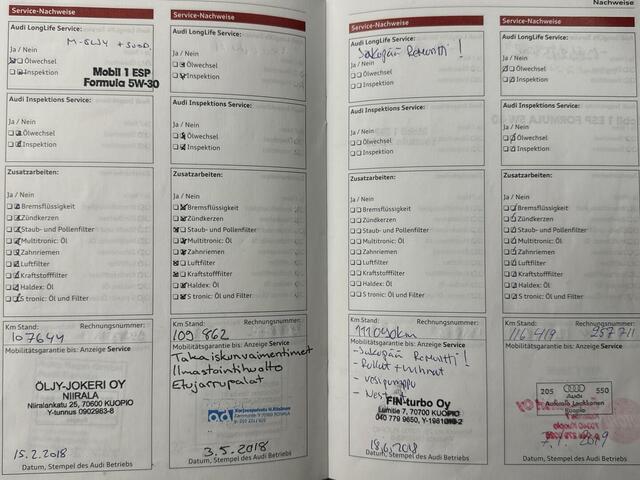 Nachweise
Service-Nachweise
Audi LongLife Service:
Ja / Nein
Ölwechsel
Inspektion
Mobil 1 ESP
Formula 5W-30
Audi Inspektions Service:
Ja / Nein
Ölwechsel
Inspektion
Zusatzarbeiten:
Ja / Nein
Bremsflüssigkeit
Zündkerzen
Staub- und Pollenfilter
Multitronic: Öl
Zahnriemen
Luftfilter
Kraftstofffilter
Haldex: Öl
S tronic: Öl und Filter
Km Stand: Rechnungsnummer:
107644
Mobilitätsgarantie bis: Anzeige Service
ÖLJY-JOKERI OY
NIIRALA
Niiralankatu 25, 70600 KUOPIO
Y-tunnus 0902983-8
15.2.2018
Datum, Stempel des Audi Betriebs
Service-Nachweise
Audi LongLife Service:
Ja / Nein
Ölwechsel
Inspektion
Audi Inspektions Service:
Ja / Nein
Ölwechsel
Inspektion
Zusatzarbeiten:
Ja / Nein
Bremsflüssigkeit
Zündkerzen
Staub- und Pollenfilter
Multitronic: Öl
Zahnriemen
Luftfilter
Kraftstofffilter
Haldex: Öl
S tronic: Öl und Filter
Km Stand: Rechnungsnummer:
109 862
Mobilitätsgarantie bis: Anzeige Service
Takaiskunvaimentimet
Ilmastointihuolto
Etujarrupalat
ad
3.5.2018
Datum, Stempel des Audi Betriebs
Service-Nachweise
Audi LongLife Service:
Ja / Nein
Jakopää Remontti!
Ölwechsel
Inspektion
Audi Inspektions Service:
Ja / Nein
Ölwechsel
Inspektion
Zusatzarbeiten:
Ja / Nein
Bremsflüssigkeit
Zündkerzen
Staub- und Pollenfilter
Multitronic: Öl
Zahnriemen
Luftfilter
Kraftstofffilter
Haldex: Öl
S tronic: Öl und Filter
Km Stand: Rechnungsnummer:
111090km
Mobilitätsgarantie bis: Anzeige Service
- Jakopää Remontti!
- Rullat + hihnat
- vesipumppu
FIN-turbo Oy
7, 70700 KUOPIO
040 779 9650,
18.6.2018
Datum, Stempel des Audi Betriebs
Service-Nachweise
Audi LongLife Service:
Ja / Nein
Ölwechsel
Inspektion
Audi Inspektions Service:
Ja / Nein
Ölwechsel
Inspektion
Zusatzarbeiten:
Ja / Nein
Bremsflüssigkeit
Zündkerzen
Staub- und Pollenfilter
Multitronic: Öl
Zahnriemen
Luftfilter
Kraftstofffilter
Haldex: Öl
S tronic: Öl und Filter
Km Stand: Rechnungsnummer:
116419 287711
Mobilitätsgarantie bis: Anzeige Service
205 Audi 550
Kuopio
2019
Datum, Stempel des Audi Betriebs